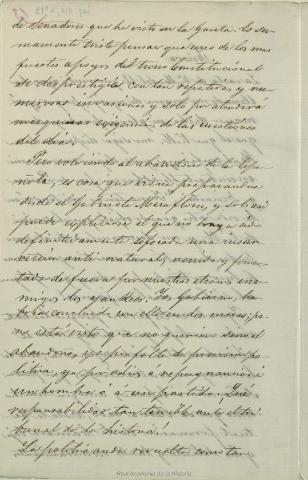 de Senadores que he visto en la Gaceta. Es su-
mamente triste pensar que uno de los mas
fuertes apoyos del trono constitucional
se desprestigie con tan repetidas y nu-
merosas invasiones y solo por atender á
mezquinas exigencias de las cuestiones
del dia.
Pero volviendo al abandono de la Espa-
ñola, es cosa que viene preparandose
desde el Gabinete Miraflores, y solo así
puede esplicarse el que no haya sido
definitivamente sofocada una insur-
reccion anti natural, venida y fomen-
tada de fuera por nuestros eternos ene-
migos los yankees. Un Gobierno, ha-
bria concluido con ello en dos meses; pe-
ro está visto que no quieren sino el
abandono, ya por falta de prevision po-
litica, ya por odios ó repugnancia á
un hombre ó a un partido. ¡Que
responsabilidad tan terrible ante el tri-
bunal de la historia!
La politica anda revuelta como tan
Real Academia de la Historia